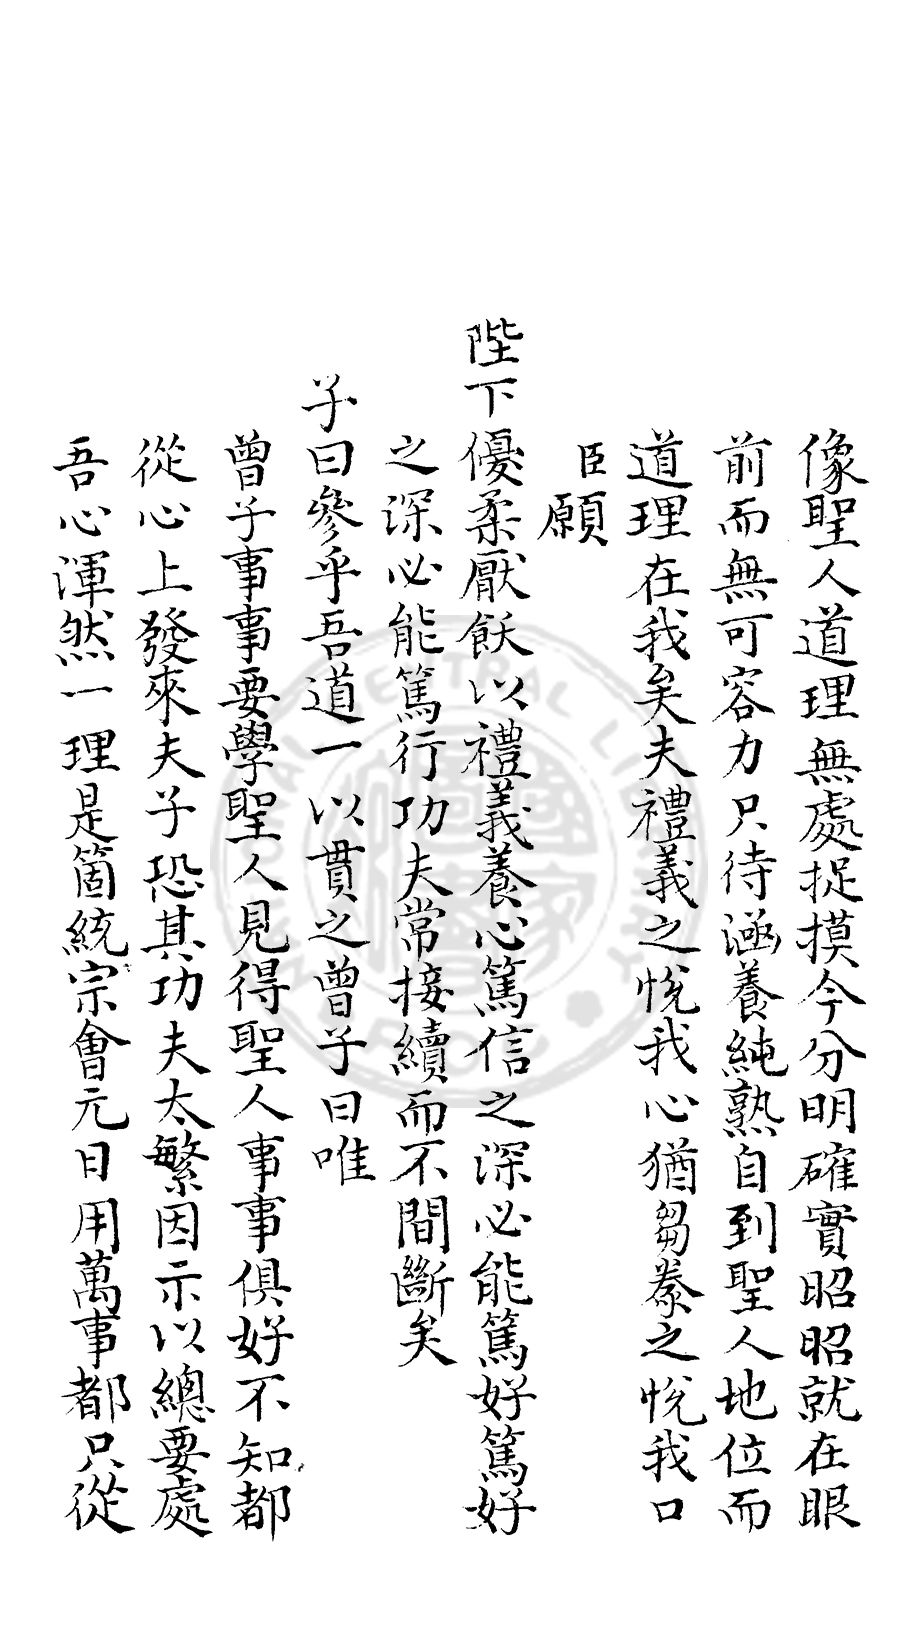 像聖人道理無處捉摸今分明確實昭昭就在眼
前而無可容力只待涵養純熟自到聖人地位而
道理在我矣夫禮義之悅我心猶芻豢之悅我口
臣願
陛下優柔厭飫以禮義養心篤信之深必能篤好篤好
之深必能篤行功夫常接續而不間斷矣
子曰參乎吾道一以貫之曾子曰唯
曾子事事要學聖人見得聖人事事俱好不知都
從心上發來夫子恐其功夫太繁因示以總要處
吾心渾然一理是箇統宗會元日用萬事都只從